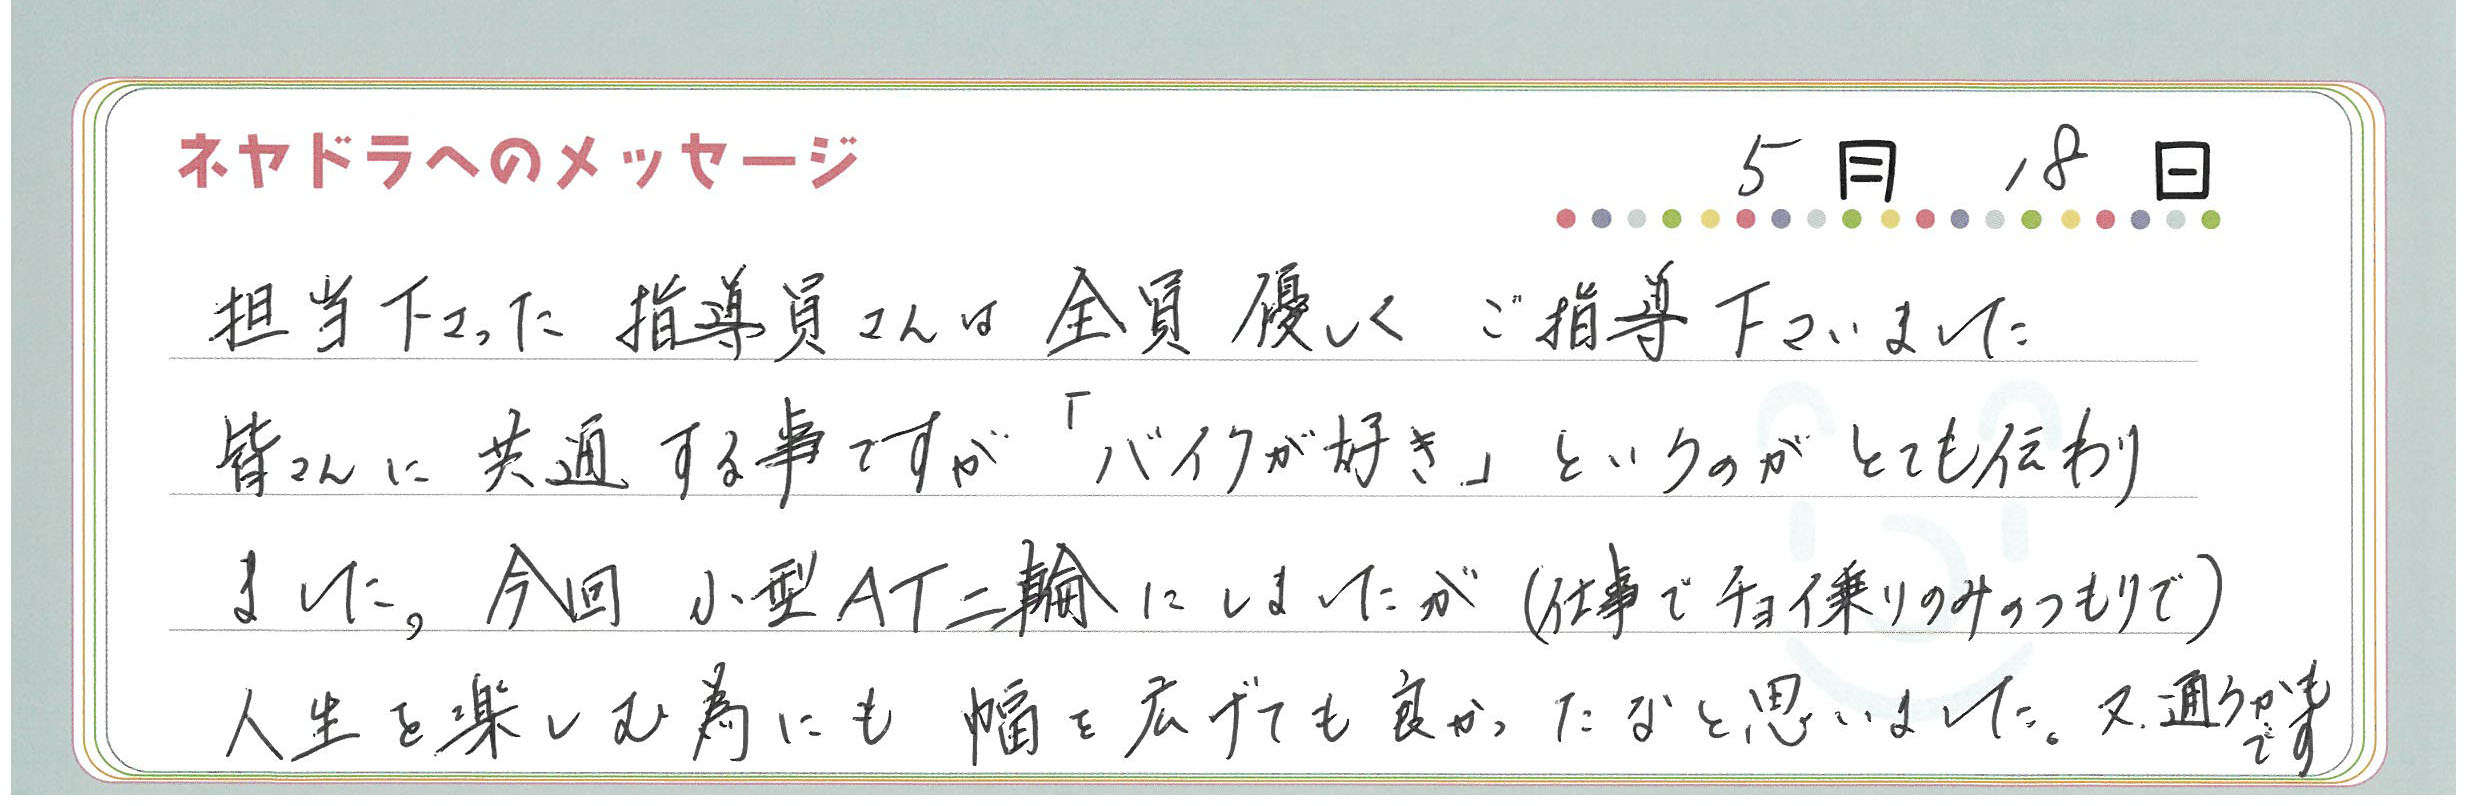 ネヤドラへのメッセージ
5月 18日
担当下さった 指導員さんは 全員 優しく ご指導 下さいました
皆さんに 共通 する事ですが 「バイクが好き」 というのが とても伝わり
ました。 今回 小型AT二輪にしましたが (仕事でチョイ乗りのみのつもりで)
人生を楽しむ為にも 幅を広げても良かったなと思いました。又、通うかも
です